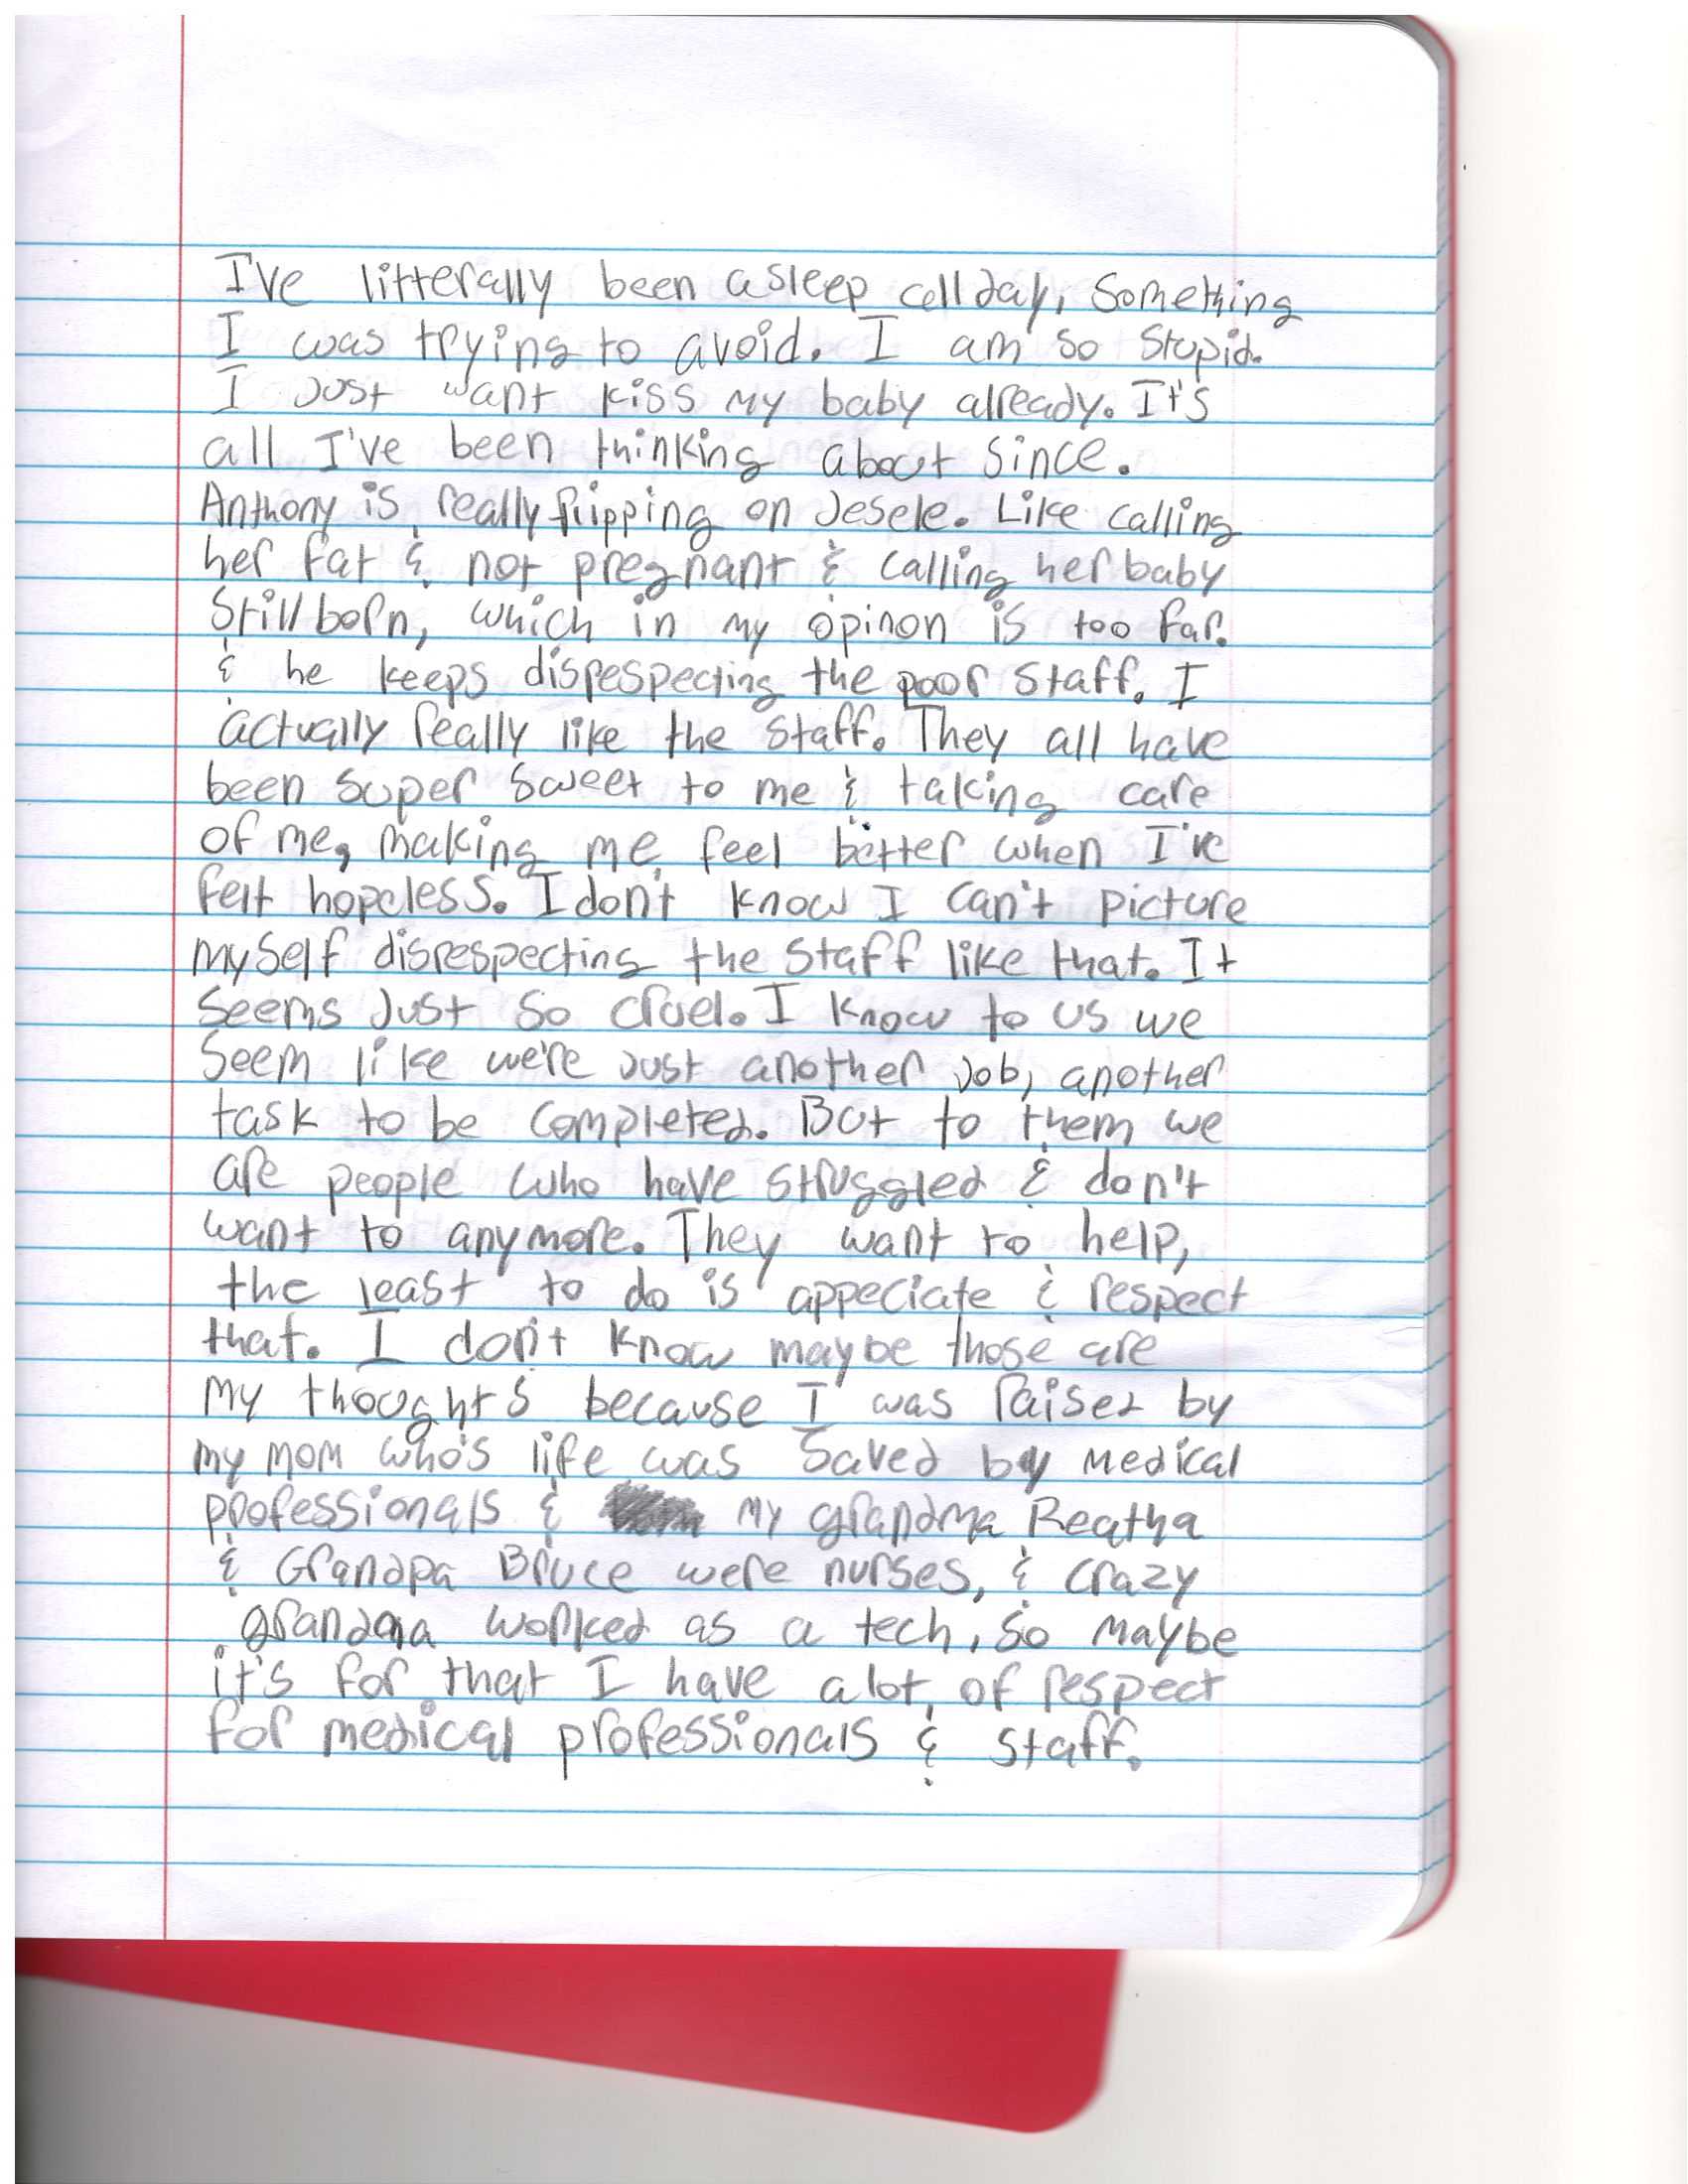 I've litterally been asleep all day, something
I was trying to avoid. I am so stupid.
I Just want kiss my baby already. It's
all I've been thinking about since.
Anthony is really flipping on Jesele. Like calling
her fat & not pregnant & calling her baby
Stillborn, which in my opinon is too far.
& he keeps disrespecting the poor staff. I
actually really like the staff. They all have
been super sweet to me & taking care
of me, making me feel better when I've
felt hopeless. I don't know I can't picture
myself disrespecting the staff like that. It
seems Just so cruel. I know to us we
seem like we're Just another Job, another
task to be completed. But to them we
are people who have struggled & don't
want to anymore. They want to help,
the least to do is appeciate & respect
that. I don't know maybe those are
my thoughts because I was raised by
my mom who's life was saved by medical
professionals & my grandma Reatha
& Grandpa Bruce were nurses, & crazy
grandma worked as a tech, so maybe
it's for that I have a lot of respect
for medical professionals & staff.